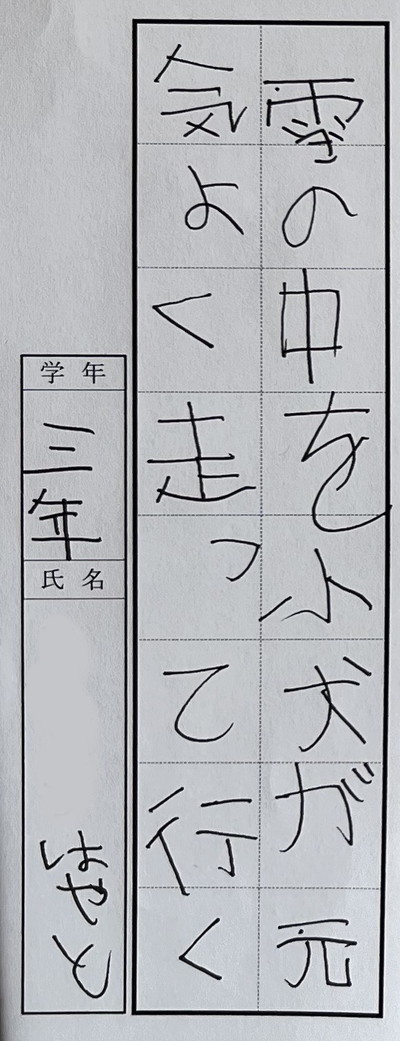 雪の中を小犬が元
気よく走って行く
学年
三年
氏名
はやと